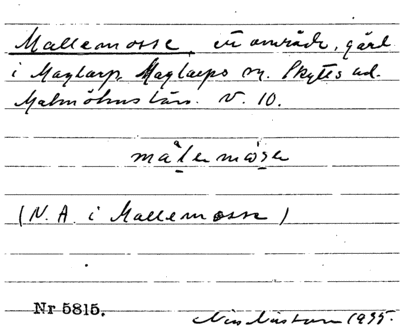 Mallemosse, en område, gård
i Maglarp, Maglarps sn. Skytts hd.
Malmöhus län. V. 10.
målemåse
(N. A. i Mallemosse)
Nr 5815.
1935.